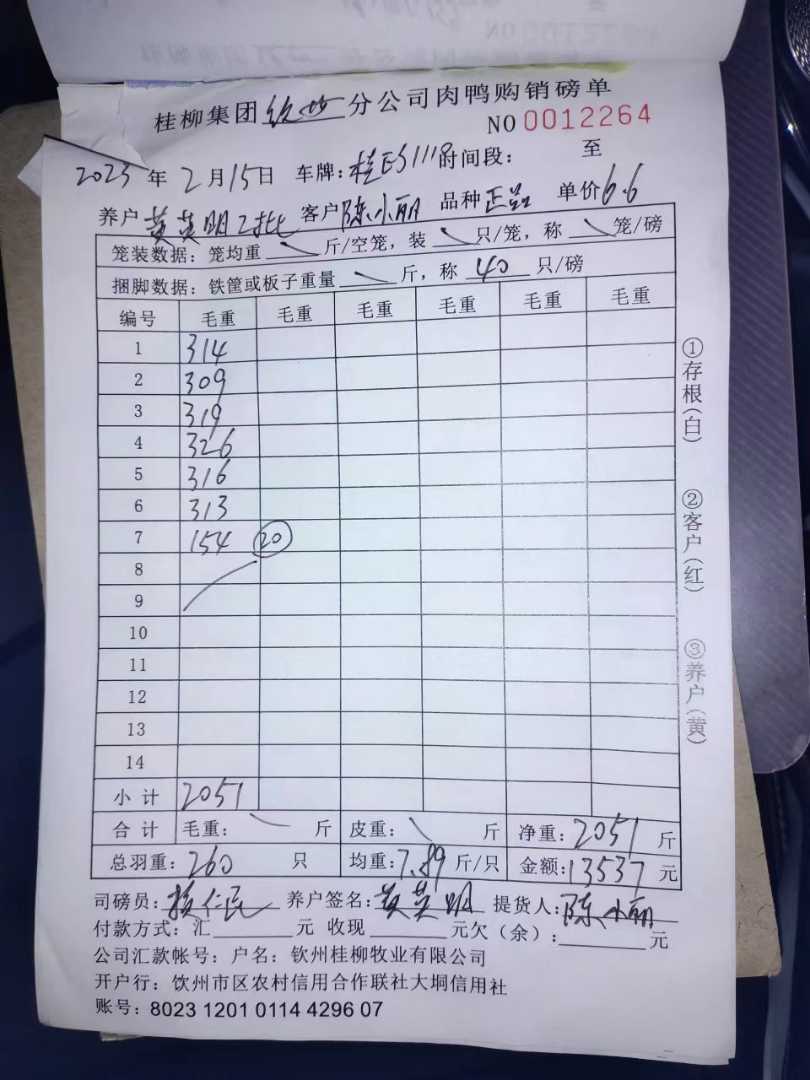 桂柳集团钦州分公司肉鸭购销磅单
NO 0012264
2023年2月15日 车牌: 时间段: 至
养户黄英明2批 客户陈小丽 品种正品 单价6.6
笼装数据：笼均重 斤/空笼，装 只/笼，称 笼/磅
捆脚数据：铁筐或板子重量 斤，称 40 只/磅
编号 毛重 毛重 毛重 毛重 毛重 毛重
1 314
2 309
3 319
4 326
5 316
6 313
7 154 20
8
9
10
11
12
13
14
小计 2051
合计 毛重： 斤 皮重： 斤 净重：2051 斤
总羽重：260 只 均重：7.89 斤/只 金额：13537 元
司磅员： 养户签名：黄英明 提货人：陈小丽
付款方式：汇 元 收现 元欠（余）： 元
公司汇款帐号：户名：钦州桂柳牧业有限公司
开户行：饮州市区农村信用合作联社大垌信用社
账号：8023 1201 0114 4296 07
①存根(白)
②客户(红)
③养户(黄)